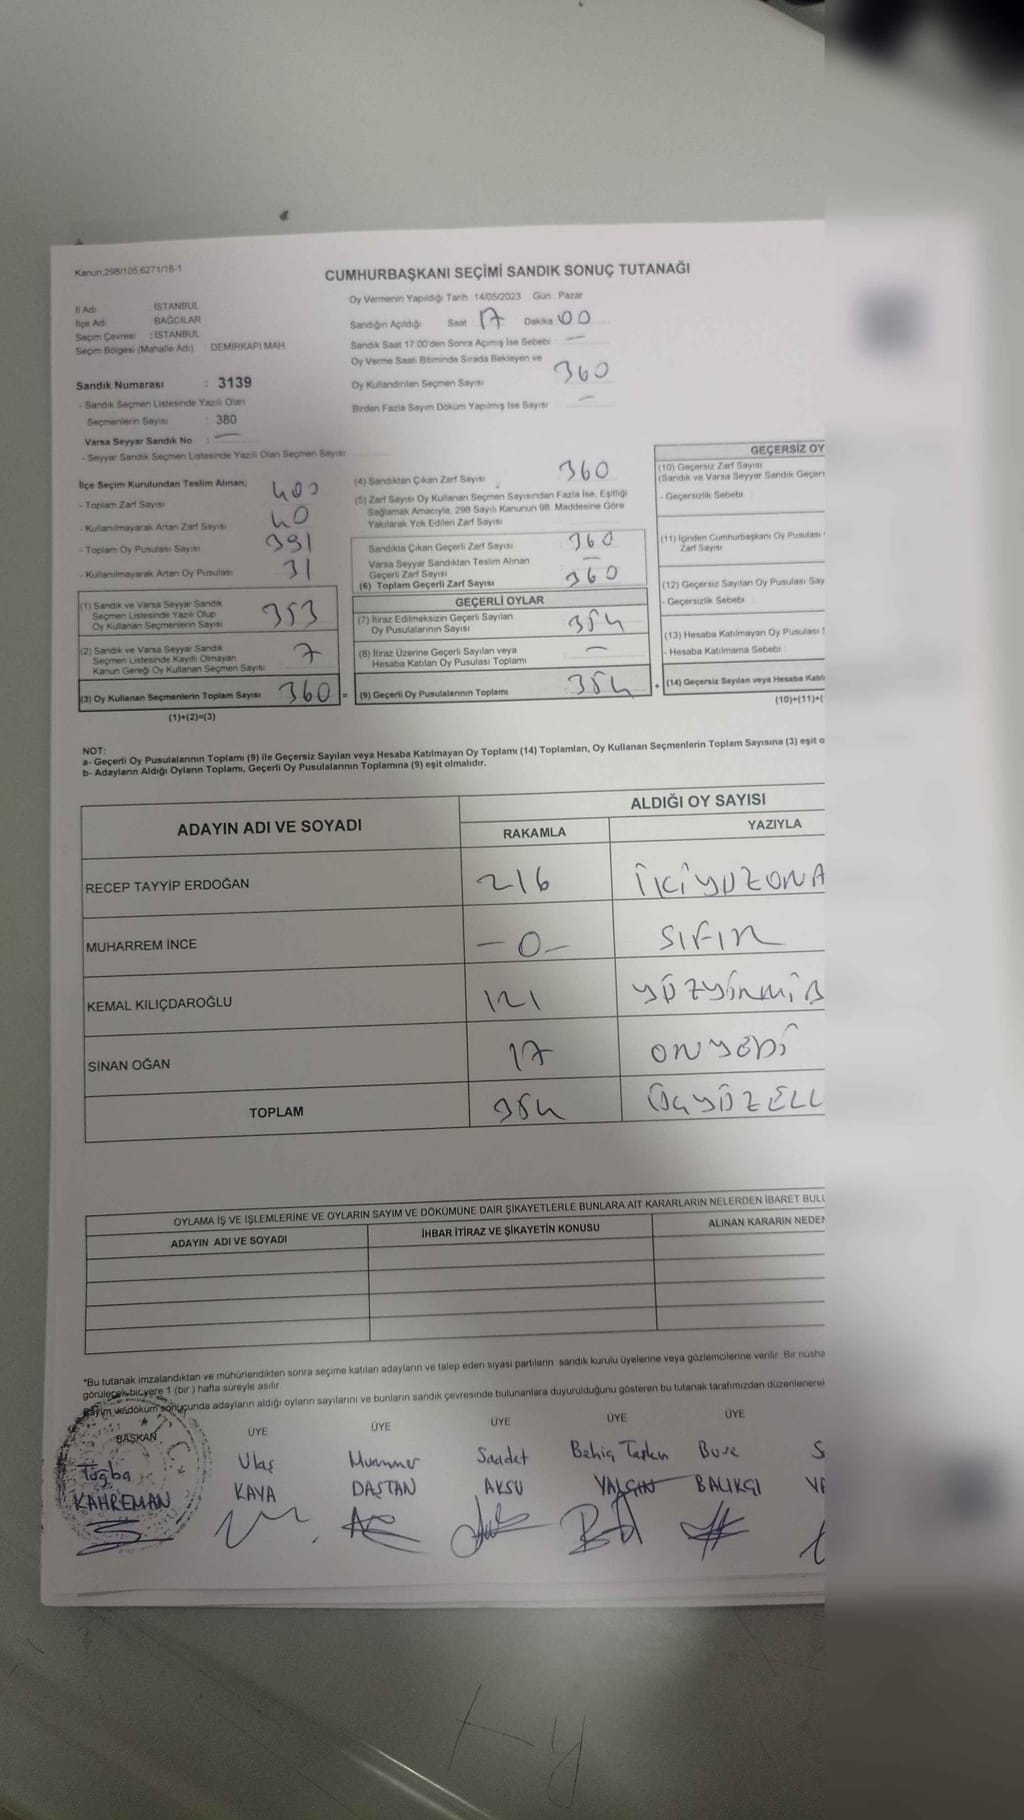 Kanun:298/105,6271/18-1
CUMHURBAŞKANI SEÇİMİ SANDIK SONUÇ TUTANAĞI
İl Adı : İSTANBUL
İlçe Adı : BAĞCILAR
Seçim Çevresi : İSTANBUL
Seçim Bölgesi (Mahalle Adı) : DEMİRKAPI MAH.
Oy Vermenin Yapıldığı Tarih :14/05/2023 Gün : Pazar
Sandığın Açıldığı Saat 17 Dakika 00
Sandık Saat 17:00'den Sonra Açımış İse Sebebi —
Oy Verme Saati Bitiminde Sırada Bekleyen ve
Oy Kullandırılan Seçmen Sayısı 360
Birden Fazla Sayım Döküm Yapılmış İse Sayısı —
Sandık Numarası : 3139
- Sandık Seçmen Listesinde Yazılı Olan
Seçmenlerin Sayısı : 380
Varsa Seyyar Sandık No : —
- Seyyar Sandık Seçmen Listesinde Yazılı Olan Seçmen Sayısı
İlçe Seçim Kurulundan Teslim Alınan;
- Toplam Zarf Sayısı 400
- Kullanılmayarak Artan Zarf Sayısı 40
- Toplam Oy Pusulası Sayısı 391
- Kullanılmayarak Artan Oy Pusulası 31
(1) Sandık ve Varsa Seyyar Sandık
Seçmen Listesinde Yazılı Olup
Oy Kullanan Seçmenlerin Sayısı 353
(2) Sandık ve Varsa Seyyar Sandık
Seçmen Listesinde Kayıtlı Olmayan
Kanun Gereği Oy Kullanan Seçmen Sayısı 7
(3) Oy Kullanan Seçmenlerin Toplam Sayısı 360 =
(1)+(2)=(3)
(4) Sandıktan Çıkan Zarf Sayısı 360
(5) Zarf Sayısı Oy Kullanan Seçmen Sayısından Fazla İse, Eşitliği
Sağlamak Amacıyla, 298 Sayılı Kanunun 98. Maddesine Göre
Yakılarak Yok Edilen Zarf Sayısı
Sandıkta Çıkan Geçerli Zarf Sayısı 360
Varsa Seyyar Sandıktan Teslim Alınan
Geçerli Zarf Sayısı —
(6) Toplam Geçerli Zarf Sayısı 360
GEÇERLİ OYLAR
(7) İtiraz Edilmeksizin Geçerli Sayılan
Oy Pusulalarının Sayısı 354
(8) İtiraz Üzerine Geçerli Sayılan veya
Hesaba Katılan Oy Pusulası Toplamı —
(9) Geçerli Oy Pusulalarının Toplamı 354 +
GEÇERSİZ OY
(10) Geçersiz Zarf Sayısı
(Sandık ve Varsa Seyyar Sandık Geçers
- Geçersizlik Sebebi
(11) İçinden Cumhurbaşkanı Oy Pusulası
Zarf Sayısı
(12) Geçersiz Sayılan Oy Pusulası Say
- Geçersizlik Sebebi
(13) Hesaba Katılmayan Oy Pusulası S
- Hesaba Katılmama Sebebi
(14) Geçersiz Sayılan veya Hesaba Katılı
(10)+(11)+(
NOT:
a- Geçerli Oy Pusulalarının Toplamı (9) ile Geçersiz Sayılan veya Hesaba Katılmayan Oy Toplamı (14) Toplamları, Oy Kullanan Seçmenlerin Toplam Sayısına (3) eşit o
b- Adayların Aldığı Oyların Toplamı, Geçerli Oy Pusulalarının Toplamına (9) eşit olmalıdır.
ADAYIN ADI VE SOYADI
ALDIĞI OY SAYISI
RAKAMLA YAZIYLA
RECEP TAYYİP ERDOĞAN 216 İKİYÜZONA
MUHARREM İNCE —0— SIFIR
KEMAL KILIÇDAROĞLU 121 YÜZYİRMİB
SİNAN OĞAN 17 ONYEDİ
TOPLAM 354 ÜÇYÜZELL
OYLAMA İŞ VE İŞLEMLERİNE VE OYLARIN SAYIM VE DÖKÜMÜNE DAİR ŞİKAYETLERLE BUNLARA AİT KARARLARIN NELERDEN İBARET BULU
ADAYIN ADI VE SOYADI İHBAR İTİRAZ VE ŞİKAYETİN KONUSU ALINAN KARARIN NEDEN
*Bu tutanak imzalandıktan ve mühürlendikten sonra seçime katılan adayların ve talep eden siyasi partilerin sandık kurulu üyelerine veya gözlemcilerine verilir. Bir nüsha
görülecek bir yere 1 (bir ) hafta süreyle asılır.
Sayım ve döküm sonucunda adayların aldığı oyların sayılarını ve bunların sandık çevresinde bulunanlara duyurulduğunu gösteren bu tutanak tarafımızdan düzenlenerek
BAŞKAN ÜYE ÜYE ÜYE ÜYE ÜYE
Tuğba Ulaş Muammer Saadet Behiq Taşkın Buse S
KAHREMAN KAYA DAŞTAN AKSU YALÇIN BALIKÇI